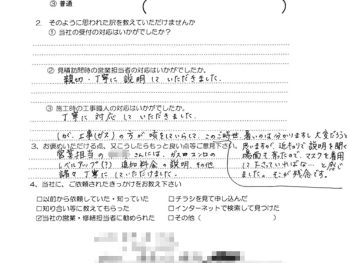 ③ 普通
2. そのように思われた訳を教えていただけませんか
① 当社の受付の対応はいかがでしたか?
② 見積訪問時の営業担当者の対応はいかがでしたか。
親切・丁寧に説明していただきました。
③ 施工時の工事職人の対応はいかがでしたか?
丁寧に対応していただきました。
しかし、工事(ガス)の方が咳をしていらして、このご時世、暑いのは分かりますし大変だろうと
思いますが、近わりで説明を聞く
場面も有たので、マスクを着用
して下さっていればな…と感じ
ました。そこが残念です。
3. お褒めいただける点、又こうしたらもっと良い点等ご意見下さい。
営業担当の さんには、ガスコンロの
レベルアップ(?)追加料金の説明、その他
諸々、丁寧にしていただけました。
4. 当社に、ご依頼されたきっかけをお教え下さい
□以前から依頼していた・知っていた □チラシを見て申し込んだ
□知り合い等に教えてもらった □インターネットで検索して見つけた
☑当社の営業・修繕担当者に勧められた □その他(